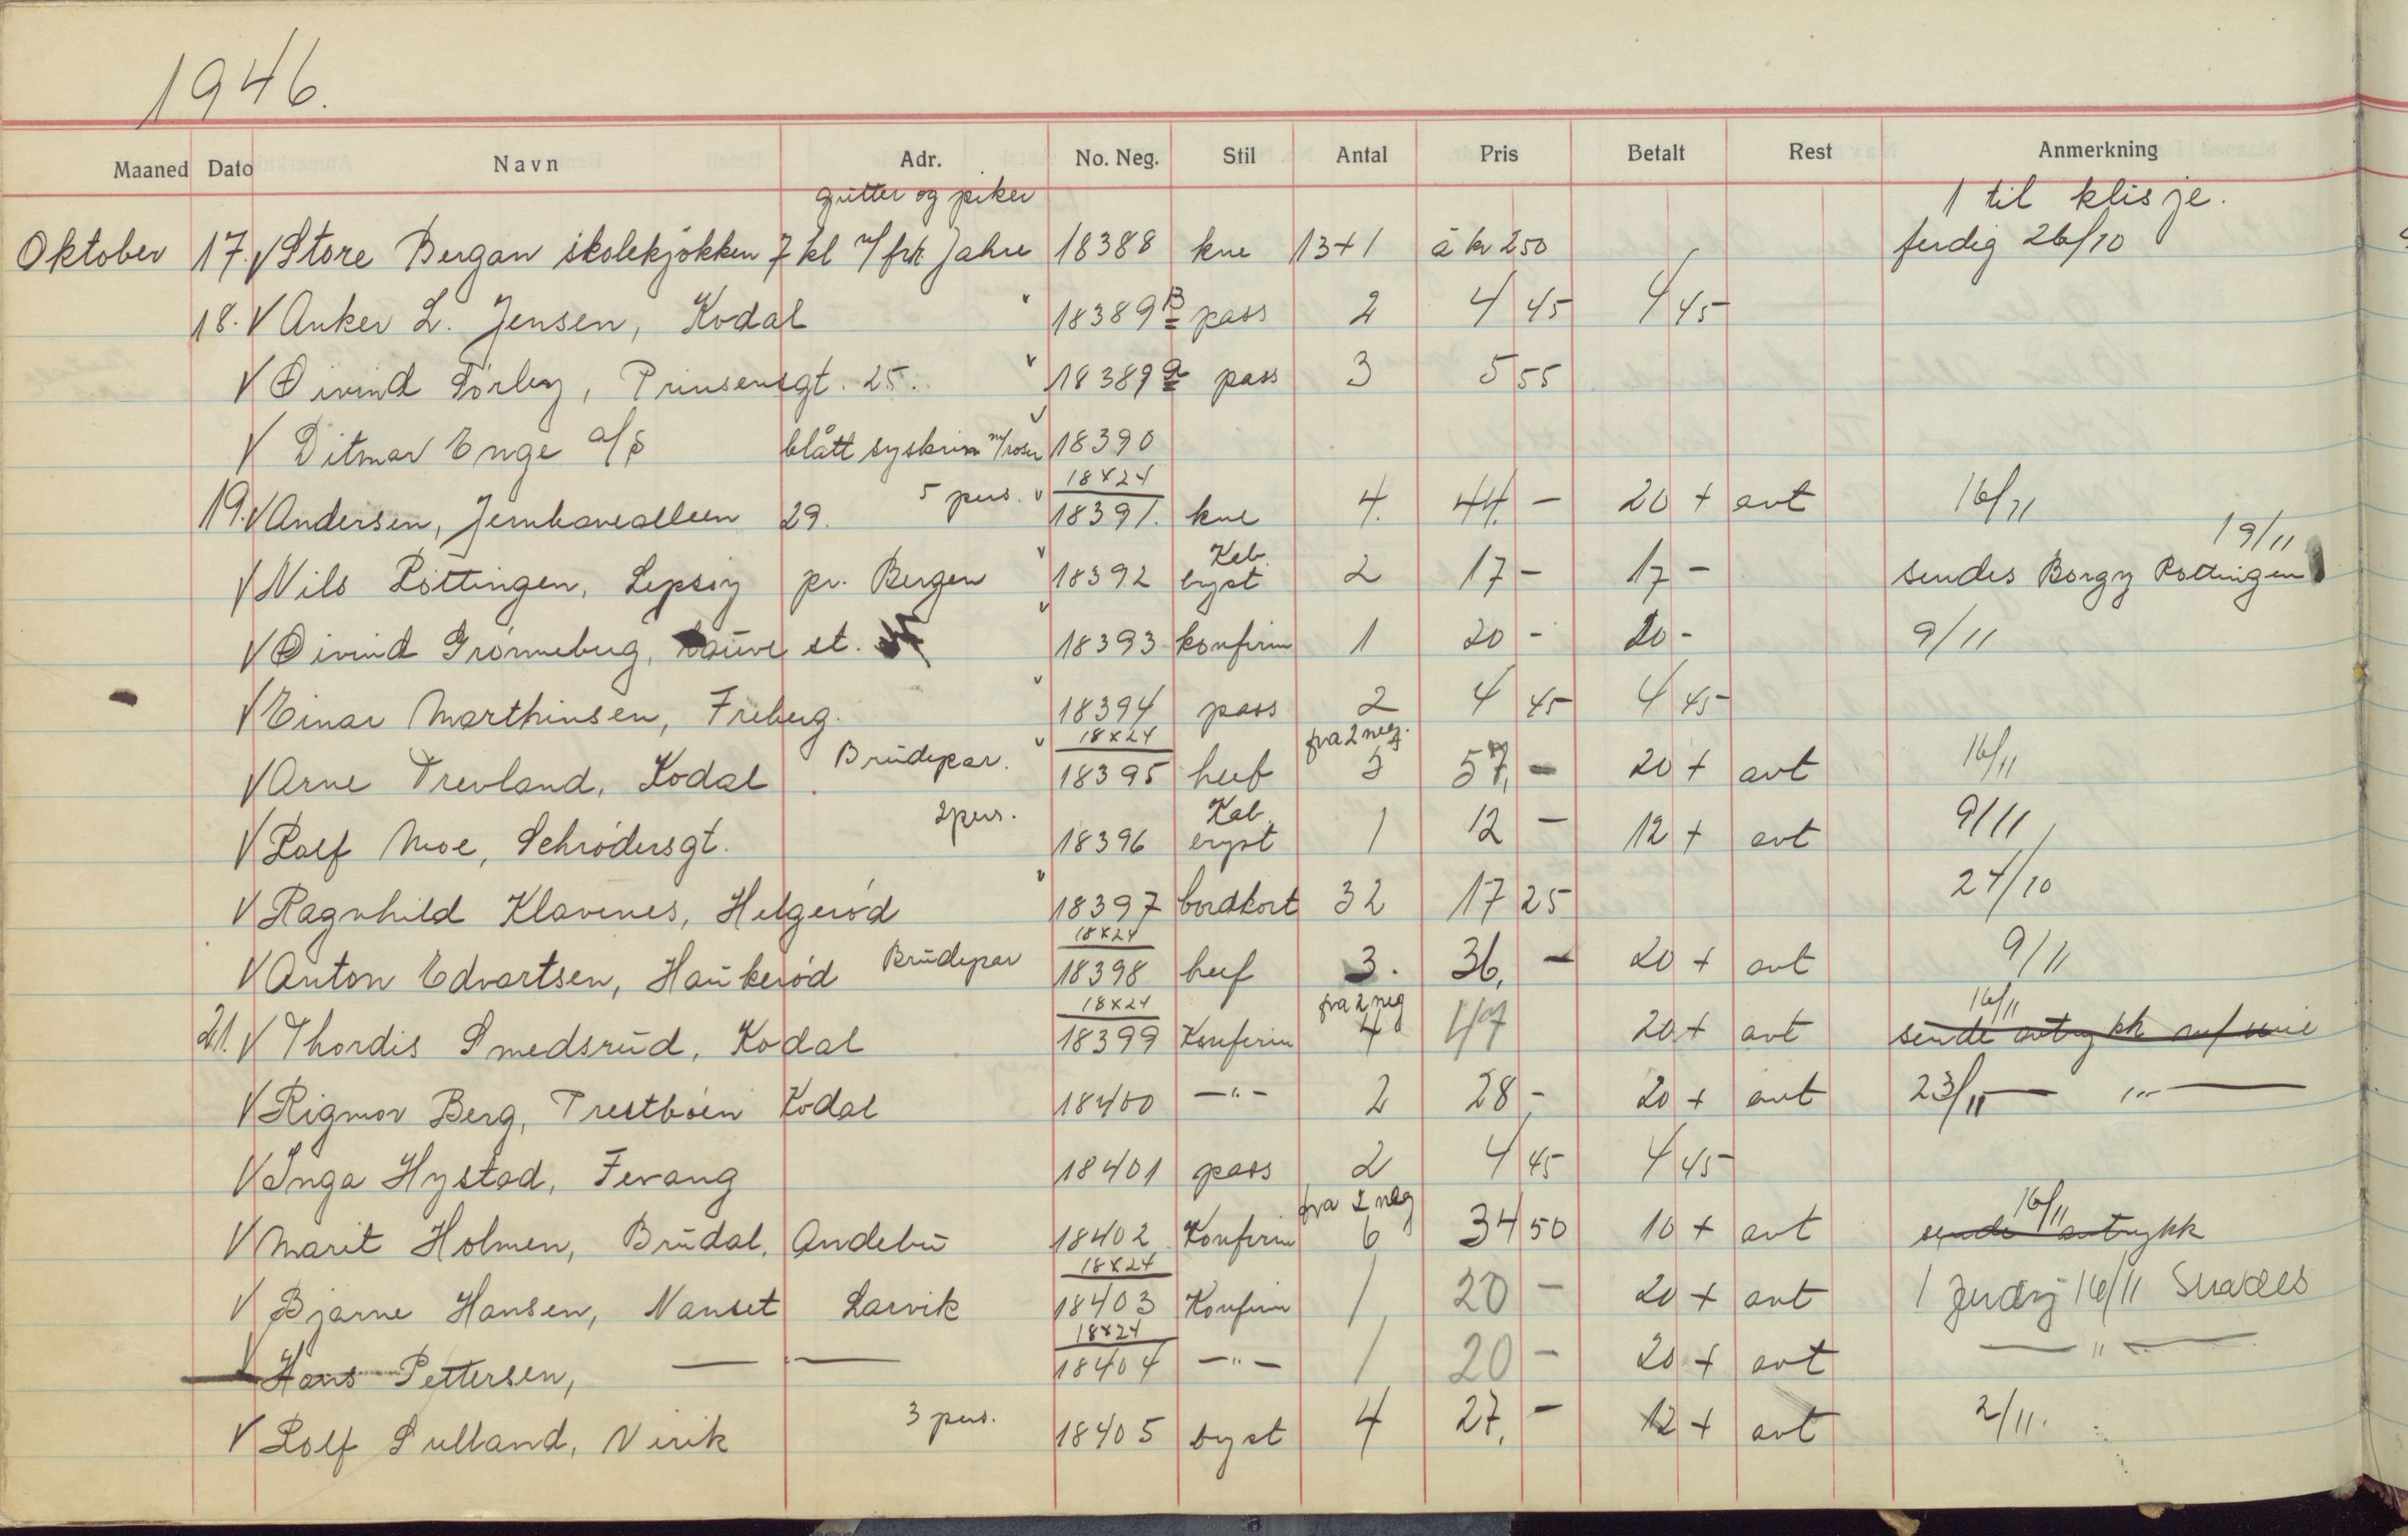 1946.
Maaned Dato Navn Adr. No. Neg. Stil Antal Pris Betalt Rest Anmerkning
gutter og piker 1 til klisje.
Oktober 17. V Store Bergan skolekjøkken 7 kl m/frk. Jahre 18388 kne 13+1 à kr 2 50 ferdig 26/10
18. V Anker L. Jensen, Kodal 18389 B pass 2 4 45 4 45
V Øivind Sørby, Prinsensgt. 25. 18389 a pass 3 5 55
V Ditmar Enge a/s blått syskrin m/roser 18390
18x24
19. V Andersen, Jernbanealleen 29. 5 pers. 18391. kne 4. 44. - 20 + avt 16/11
Kab. 19/11
V Nils Røttingen, Lepsøy pr. Bergen 18392 byst 2 17 - 17 - sendes Borgny Røttingen
V Øivind Grønneberg, Sauve st. 18393 konfirm 1 20 - 20 - 9/11
V Einar Marthinsen, Freberg. 18394 pass 2 4 45 4 45
18x24 fra 2 neg.
V Arne Trevland, Kodal Brudepar. 18395 heef 5 57, - 20 + avt 16/11
Kab.
V Rolf Moe, Schrødersgt. 2 pers. 18396 byst 1 12 - 12 + avt 9/11
V Ragnhild Klavenes, Helgerød 18397 bordkort 32 17 25 24/10
18x24
V Anton Edvartsen, Haukerød Brudepar 18398 heef 3. 36, - 20 + avt 9/11
18x24 fra 2 neg 16/11
21. V Thordis Smedsrud, Kodal 18399 Konfirm 4 47 20 + avt sende avtrykk
V Rigmor Berg, Trestbøen Kodal 18400 —"— 2 28,- 20 + avt 23/11 — " —
V Inga Hystad, Fevang 18401 pass 2 4 45 4 45
fra 2 neg 16/11
V Marit Holmen, Brudal, Andebu 18402 Konfirm 6 34 50 10 + avt sende avtrykk
18x24
V Bjarne Hansen, Nanset Larvik 18403 Konfirm 1 20 - 20 + avt 1 ferdig 16/11
18x24
V Hans Pettersen, — — 18404 —"— 1 20 - 20 + avt — " —
V Rolf Sulland, Virik 3 pers. 18405 byst 4 27, - 12 + avt 2/11.